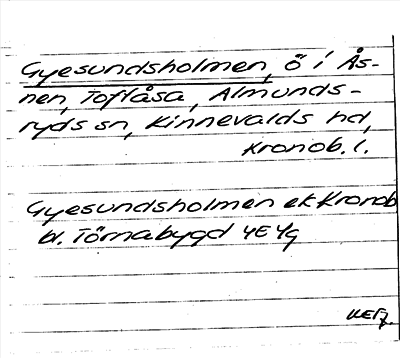 Gyesundsholmen, ö i Ås-
nen, Toftåsa, Almunds-
ryds sn, Kinnevalds hd,
Kronob. l.
Gyesundsholmen ek Kronob
bl. Törnabygd 4E4g